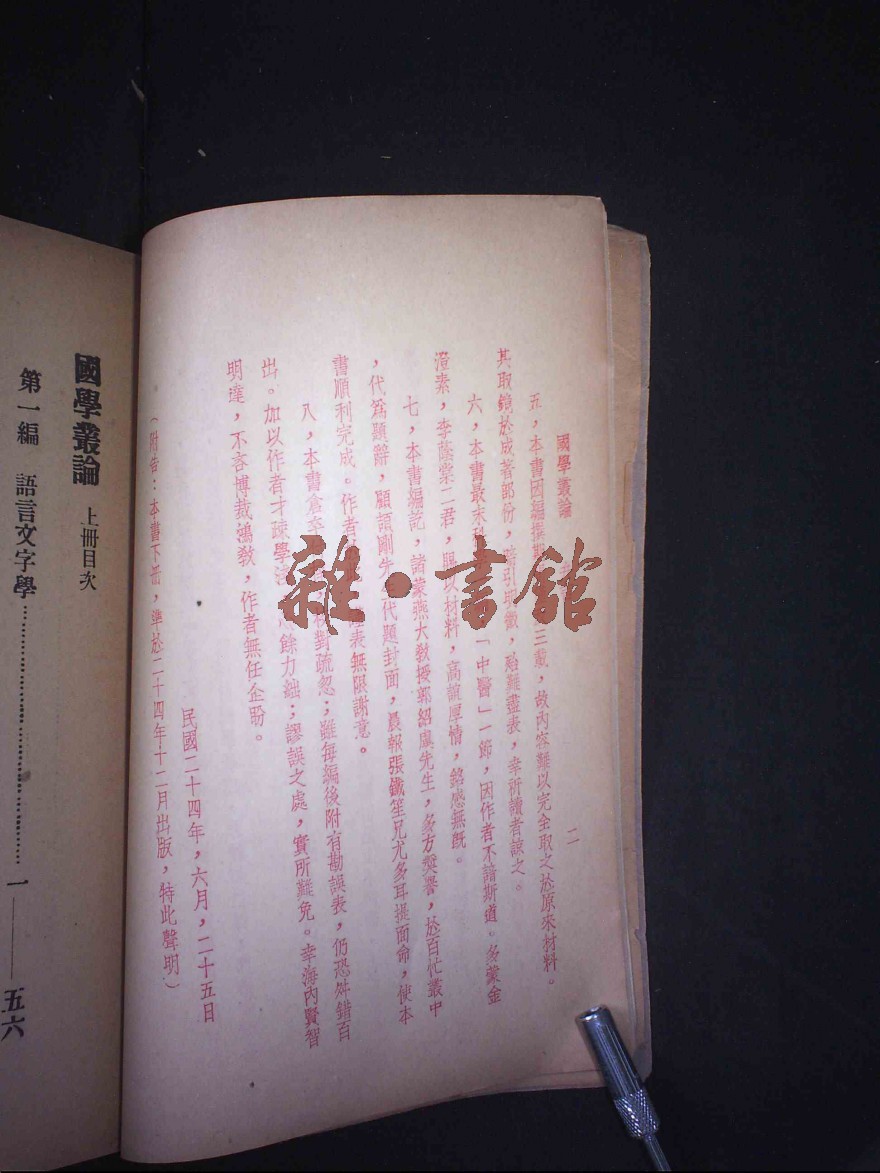 國學叢論
二
五，本書因編撰三載，故內容難以完全取之於原來材料。
其取鏡於成著部份，時難盡表，幸祈讀者諒之。
六，本書最末「中醫」一節，因作者不諳斯道。多蒙金
澄素，李蔭棠二君，賜以材料，高誼厚情，銘感無旣。
七，本書編訖，諸蒙燕大敎授郭紹虞先生，多方奬譽，於百忙叢中
，代爲題辭，顧頡剛先生代題封面，晨報張鐵笙兄尤多耳提面命，使本
書順利完成。作者表無限謝意。
八，本書倉卒對疏忽；雖每編後附有勘誤表，仍恐舛錯百
出。加以作者才疎學淺餘力絀；謬誤之處，實所難免。幸海內賢智
明達，不吝博裁鴻敎，作者無任企盼。
民國二十四年，六月，二十五日
（附告：本書下冊，準於二十四年十二月出版，特此聲明）
國學叢論 上冊目次
第一編 語言文字學……………………一——五六
雜·書館